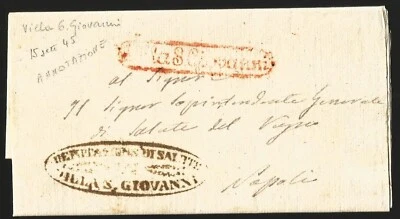 Villa S. Giovanni
15 sett 45
ANNOTAZIONE
Villa S. Giovanni
al Signor
Il Signor Sopintendente Generale
di Salute del Regno
Napoli
DEPUTAZIONE DI SALUTE
VILLA S. GIOVANNI